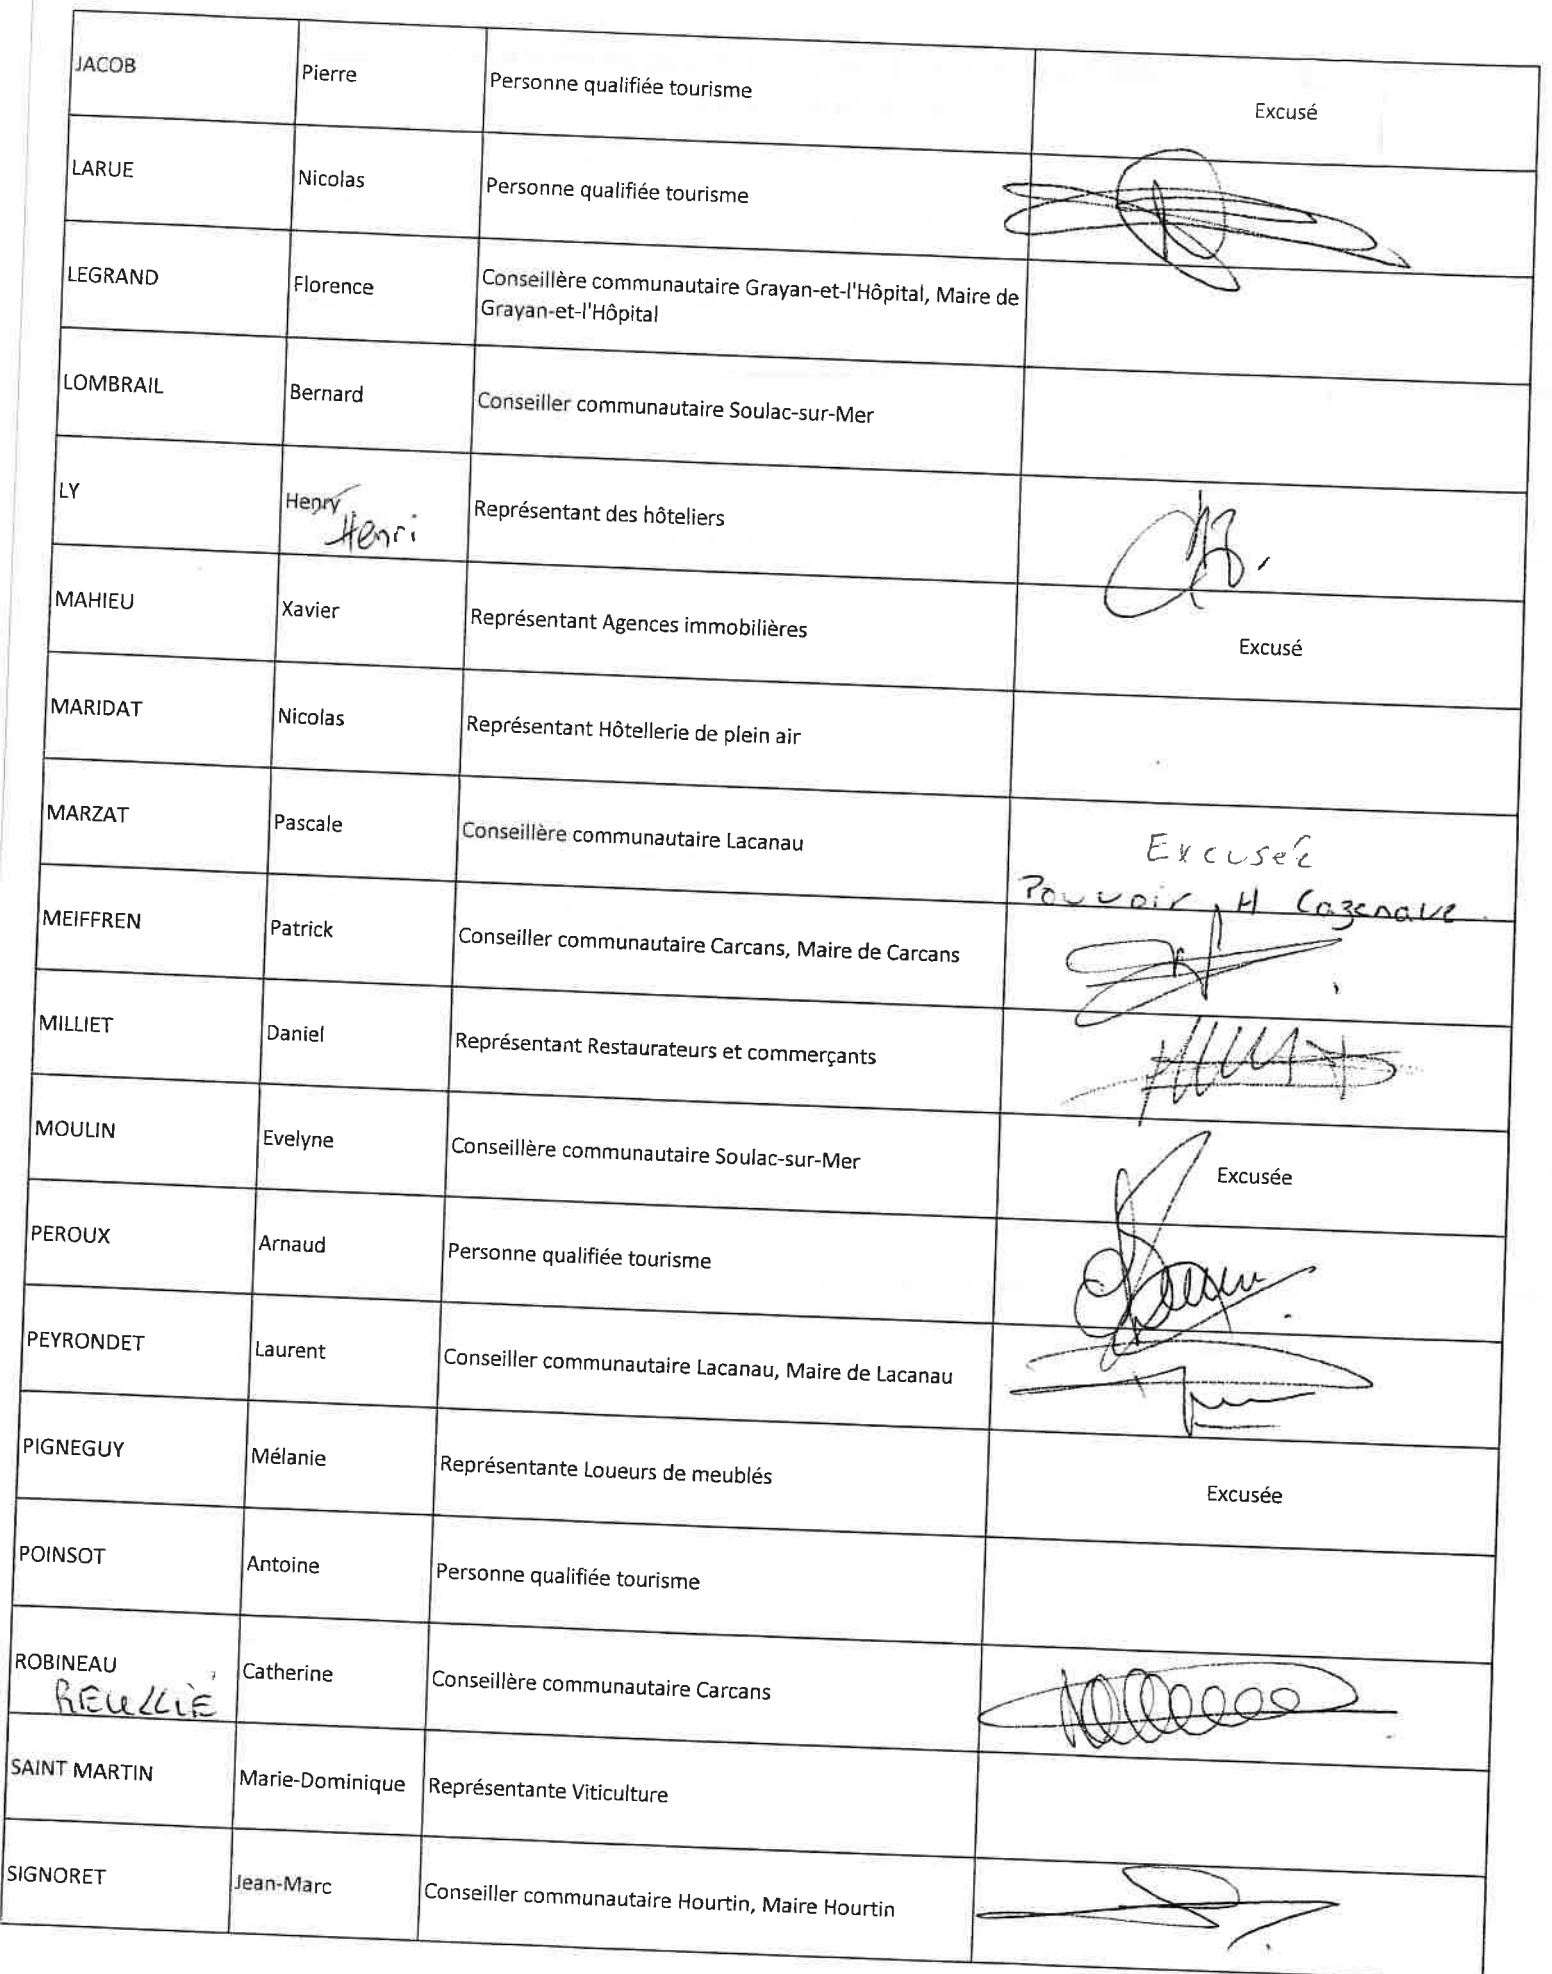 JACOB Pierre Personne qualifiée tourisme Excusé
LARUE Nicolas Personne qualifiée tourisme
LEGRAND Florence Conseillère communautaire Grayan-et-l'Hôpital, Maire de
Grayan-et-l'Hôpital
LOMBRAIL Bernard Conseiller communautaire Soulac-sur-Mer
LY Henry Représentant des hôteliers
Henri
MAHIEU Xavier Représentant Agences immobilières Excusé
MARIDAT Nicolas Représentant Hôtellerie de plein air
MARZAT Pascale Conseillère communautaire Lacanau Excusée
Pouvoir H Cazenave
MEIFFREN Patrick Conseiller communautaire Carcans, Maire de Carcans
MILLIET Daniel Représentant Restaurateurs et commerçants
MOULIN Evelyne Conseillère communautaire Soulac-sur-Mer Excusée
PEROUX Arnaud Personne qualifiée tourisme
PEYRONDET Laurent Conseiller communautaire Lacanau, Maire de Lacanau
PIGNEGUY Mélanie Représentante Loueurs de meublés Excusée
POINSOT Antoine Personne qualifiée tourisme
ROBINEAU Catherine Conseillère communautaire Carcans
REULLIÉ
SAINT MARTIN Marie-Dominique Représentante Viticulture
SIGNORET Jean-Marc Conseiller communautaire Hourtin, Maire Hourtin